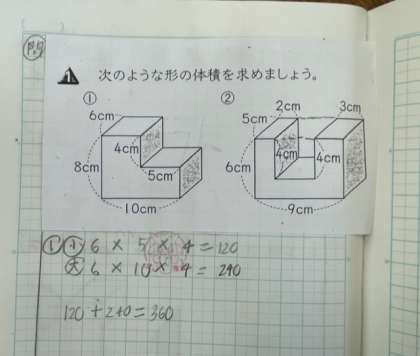 1 次のような形の体積を求めましょう。
① ②
6cm 2cm 3cm
5cm
4cm 4cm 4cm
8cm 5cm 6cm
10cm 9cm
① 小 6 × 5 × 4 = 120
大 6 × 10 × 4 = 240
120 + 240 = 360